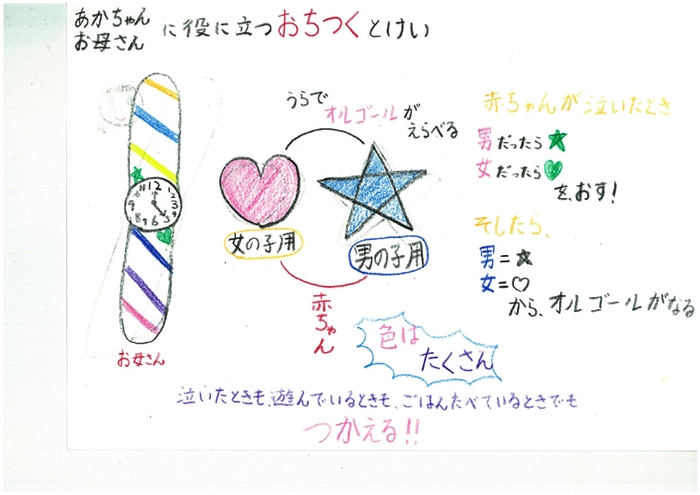 あかちゃん
お母さん
に役に立つおちつくとけい
うらで
オルゴールが
えらべる
女の子用
男の子用
赤ちゃん
お母さん
赤ちゃんが泣いたとき
男だったら★
女だったら♥
を、おす!
そしたら、
男=★
女=♡
から、オルゴールがなる
色は
たくさん
泣いたときも、遊んでいるときも、ごはんたべているときでも
つかえる!!